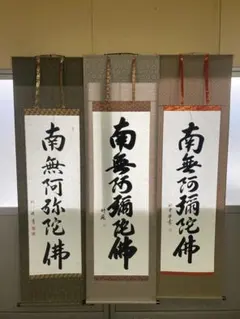 南無阿彌陀佛
南無阿彌陀佛
南無阿弥陀佛